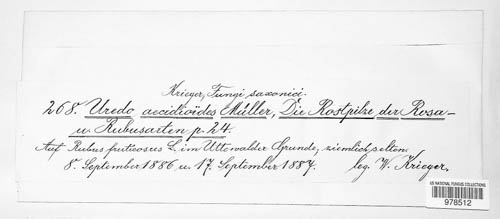 Krieger, Fungi saxonici.
268. Uredo aecidioïdes Müller, Die Rostpilze der Rosa-
u. Rubusarten p. 24.
Auf Rubus fruticosus L. im Uttewalder Grunde, ziemlich selten.
8. September 1886 u. 17. September 1887. leg. W. Krieger.
US NATIONAL FUNGUS COLLECTIONS
978512